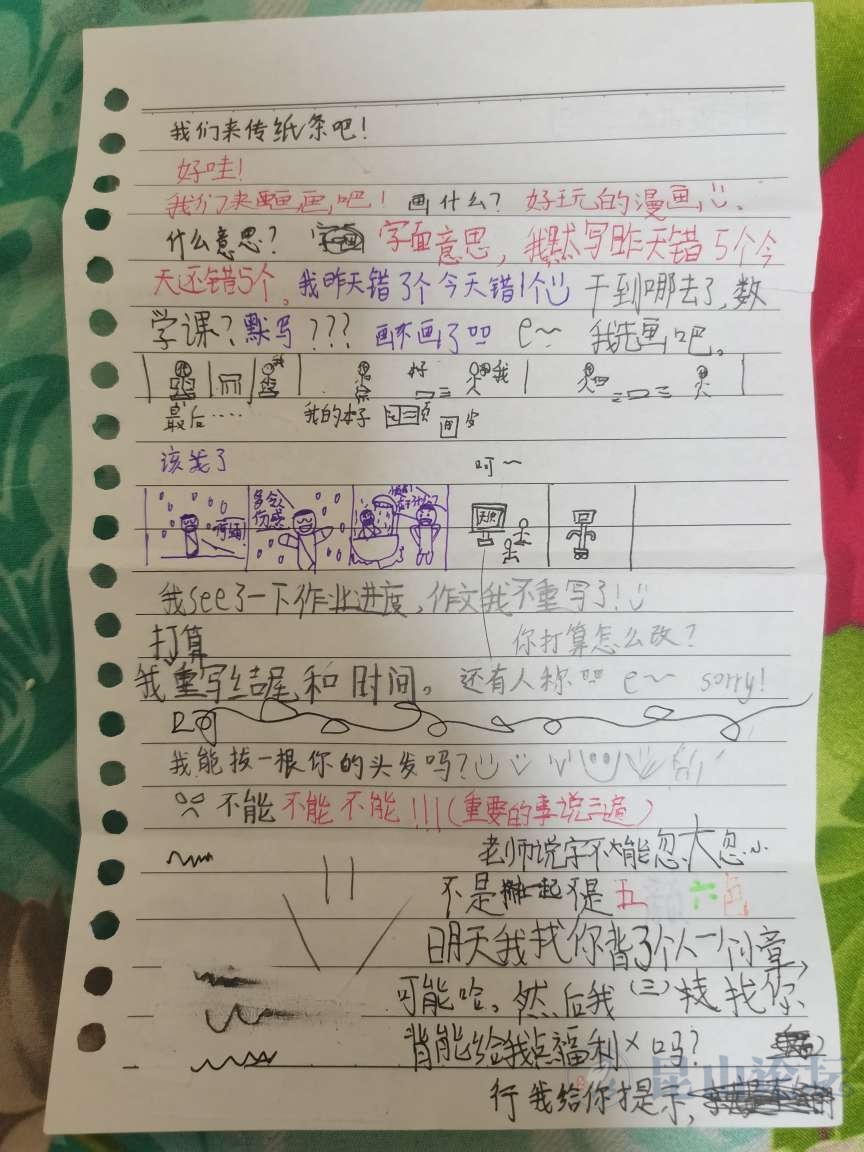 我们来传纸条吧！
好哇！
我们来画画吧！ 画什么？ 好玩的漫画
什么意思？ 字面意思，我默写昨天错5个今
天还错5个。我昨天错了个今天错1个 干到哪去了，数
学课？默写？？？ 画不画了 e~ 我先画吧。
我 好 我
最后…… 我的本子
该我了 呵~
多么伤感
我see了一下作业进度，作文我不重写了！
打算 你打算怎么改？
我重写结尾和时间。 还有人称 e~ sorry!
我能拔一根你的头发吗？
不能 不能 不能！！！（重要的事说三遍）
老师说字不能忽大忽小
不是 不是五 六色
明天我找你背了个人一个章，
可能哈。然后我（三）找你
背能给我点福利×吗？
行 我给你提示，
昆山论坛